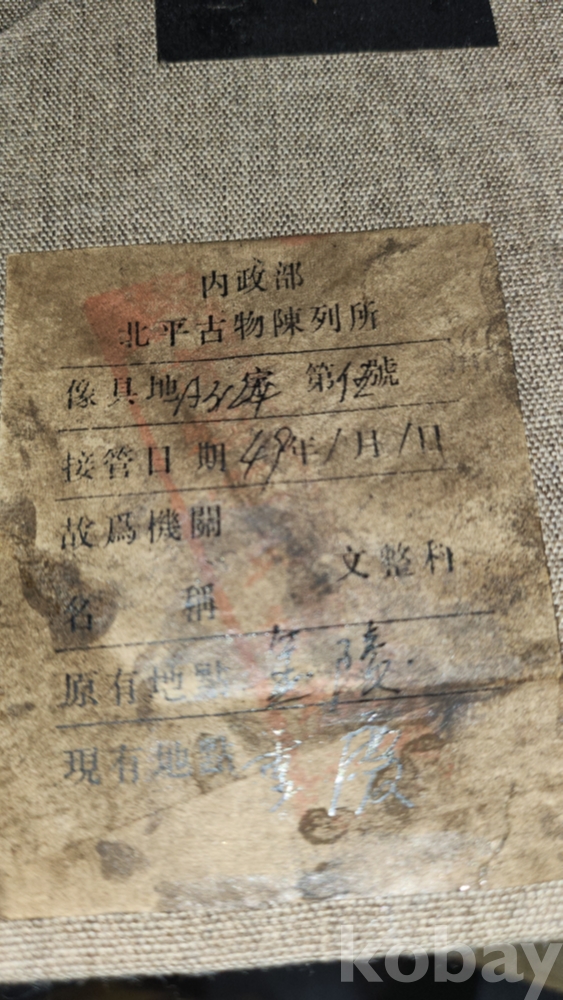 内政部
北平古物陳列所
傢具地 第伍號
接管日期49年1月1日
故爲機關
文整科
名稱
原有地點
現有地點
kobay